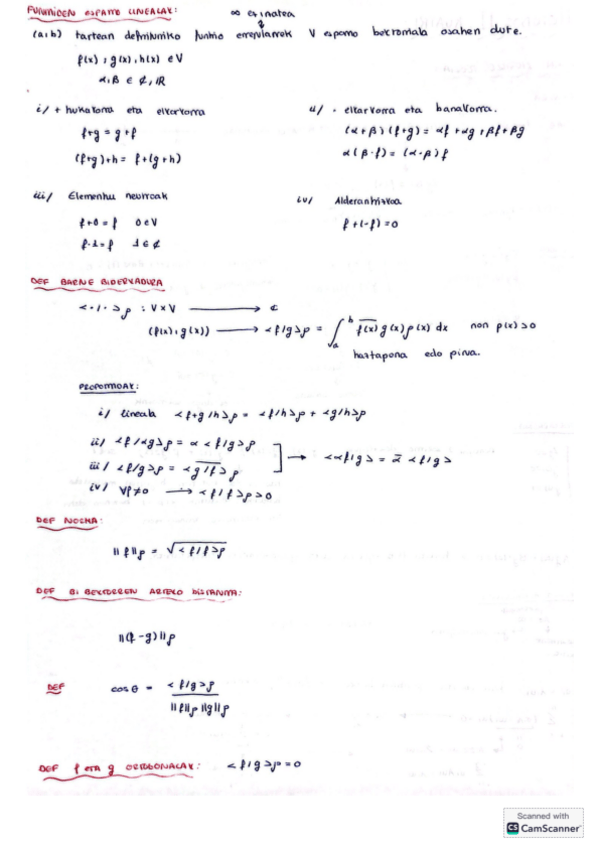 FUNTZIOEN ESPAZIO LINEALAK: ∞ 
(a,b) tartean definituriko funtzio erregularrek V espazio bektoriala osatzen dute.
f(x), g(x), h(x) ∈ V
α, β ∈ ℂ, ℝ
i/ + trukakorra eta elkarkorra
f+g = g+f
(f+g)+h = f+(g+h)
ii/ · elkarkorra eta banakorra.
(α+β)(f+g) = αf + αg + βf + βg
α(β·f) = (α·β)f
iii/ Elementu neutroak
f+0=f 0 ∈ V
f·1=f 1 ∈ ℂ
iv/ Alderantzizkoa
f+(-f)=0
DEF BARNE BIDERKADURA
<·/·>ρ : V×V → ℂ
(f(x), g(x)) → <f/g>ρ = ∫_a^b \overline{f(x)} g(x) ρ(x) dx non ρ(x)>0
haztapena edo pisua.
PROPIETATEAK:
i/ lineala <f+g/h>ρ = <f/h>ρ + <g/h>ρ
ii/ <f/αg>ρ = α <f/g>ρ
iii/ <f/g>ρ = \overline{<g/f>ρ} → <αf/g> = \overline{α} <f/g>
iv/ ∀f≠0 → <f/f>ρ > 0
DEF NORMA:
||f||ρ = √<f/f>ρ
DEF BI BEKTOREEN ARTEKO DISTANTZIA:
||(f-g)||ρ
DEF cos θ = <f/g>ρ / ||f||ρ ||g||ρ
DEF f eta g ORTOGONALAK: <f/g>ρ = 0
Scanned with
CS CamScanner